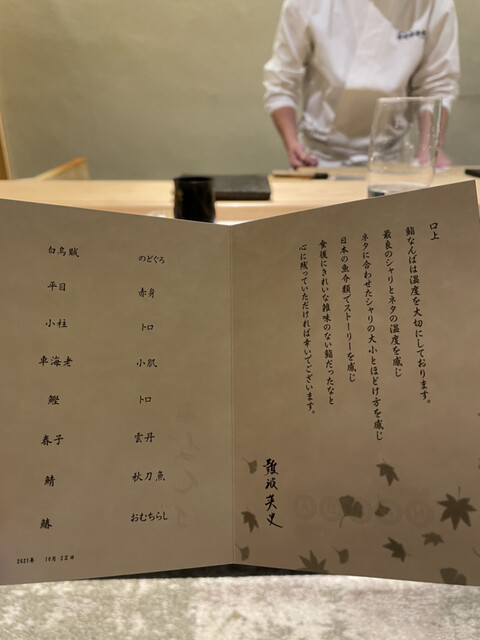 白烏賊
平目
小柱
車海老
鰹
春子
鯖
鰆
のどぐろ
赤身
トロ
小肌
トロ
雲丹
秋刀魚
おむちらし
2021年 10月 22日
口上
鮨なんばは温度を大切にしております。
最良のシャリとネタの温度を感じ
ネタに合わせたシャリの大小とほどけ方を感じ
日本の魚介類でストーリーを感じ
食後にきれいな雑味のない鮨だったなと
心に残っていただければ幸いでございます。
難波英史